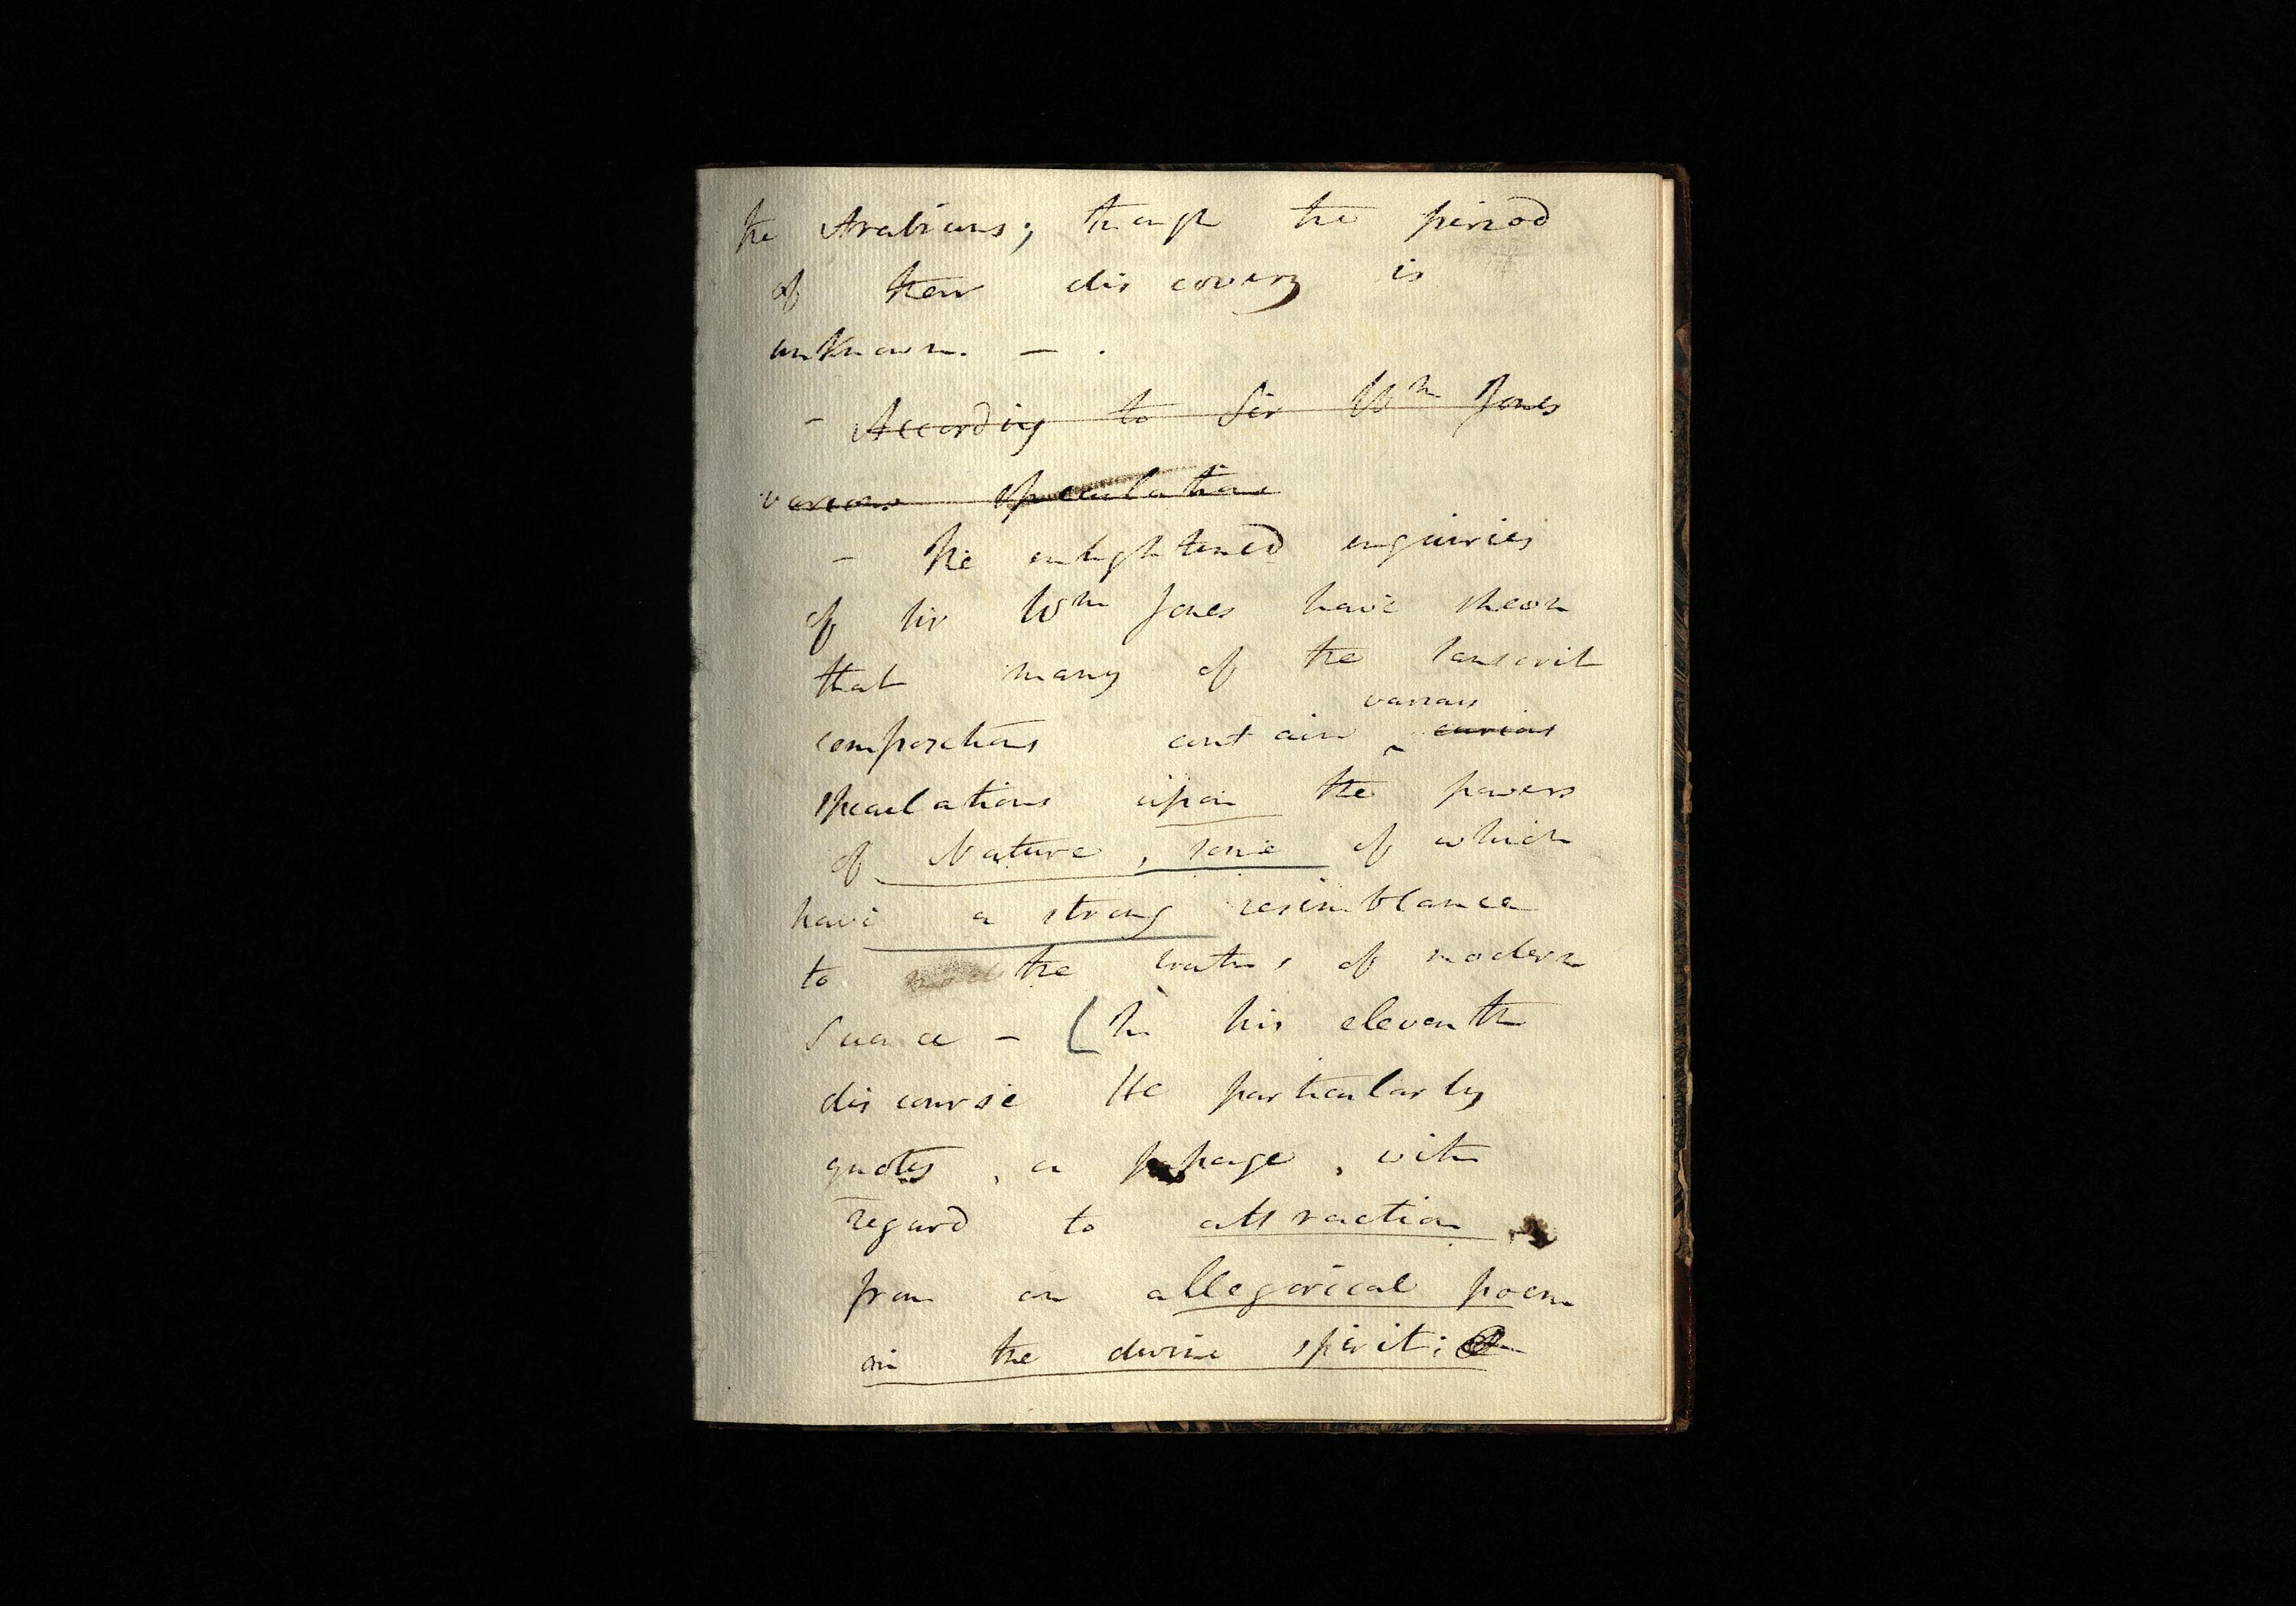 the Arabians; though the period
of their discovery is
unknown. – .
– According to Sir Wm Jones
various speculations
– The enlightened enquiries
of Sir Wm Jones have shewn
that many of the Sanscrit
various
compositions contain ^ curious
speculations upon the powers
of Nature, some of which
have a strong resemblance
to the truths of modern
Science – (In his eleventh
discourse He particularly
quotes, a passage, with
regard to attraction
from an allegorical poem
on the divine spirit;